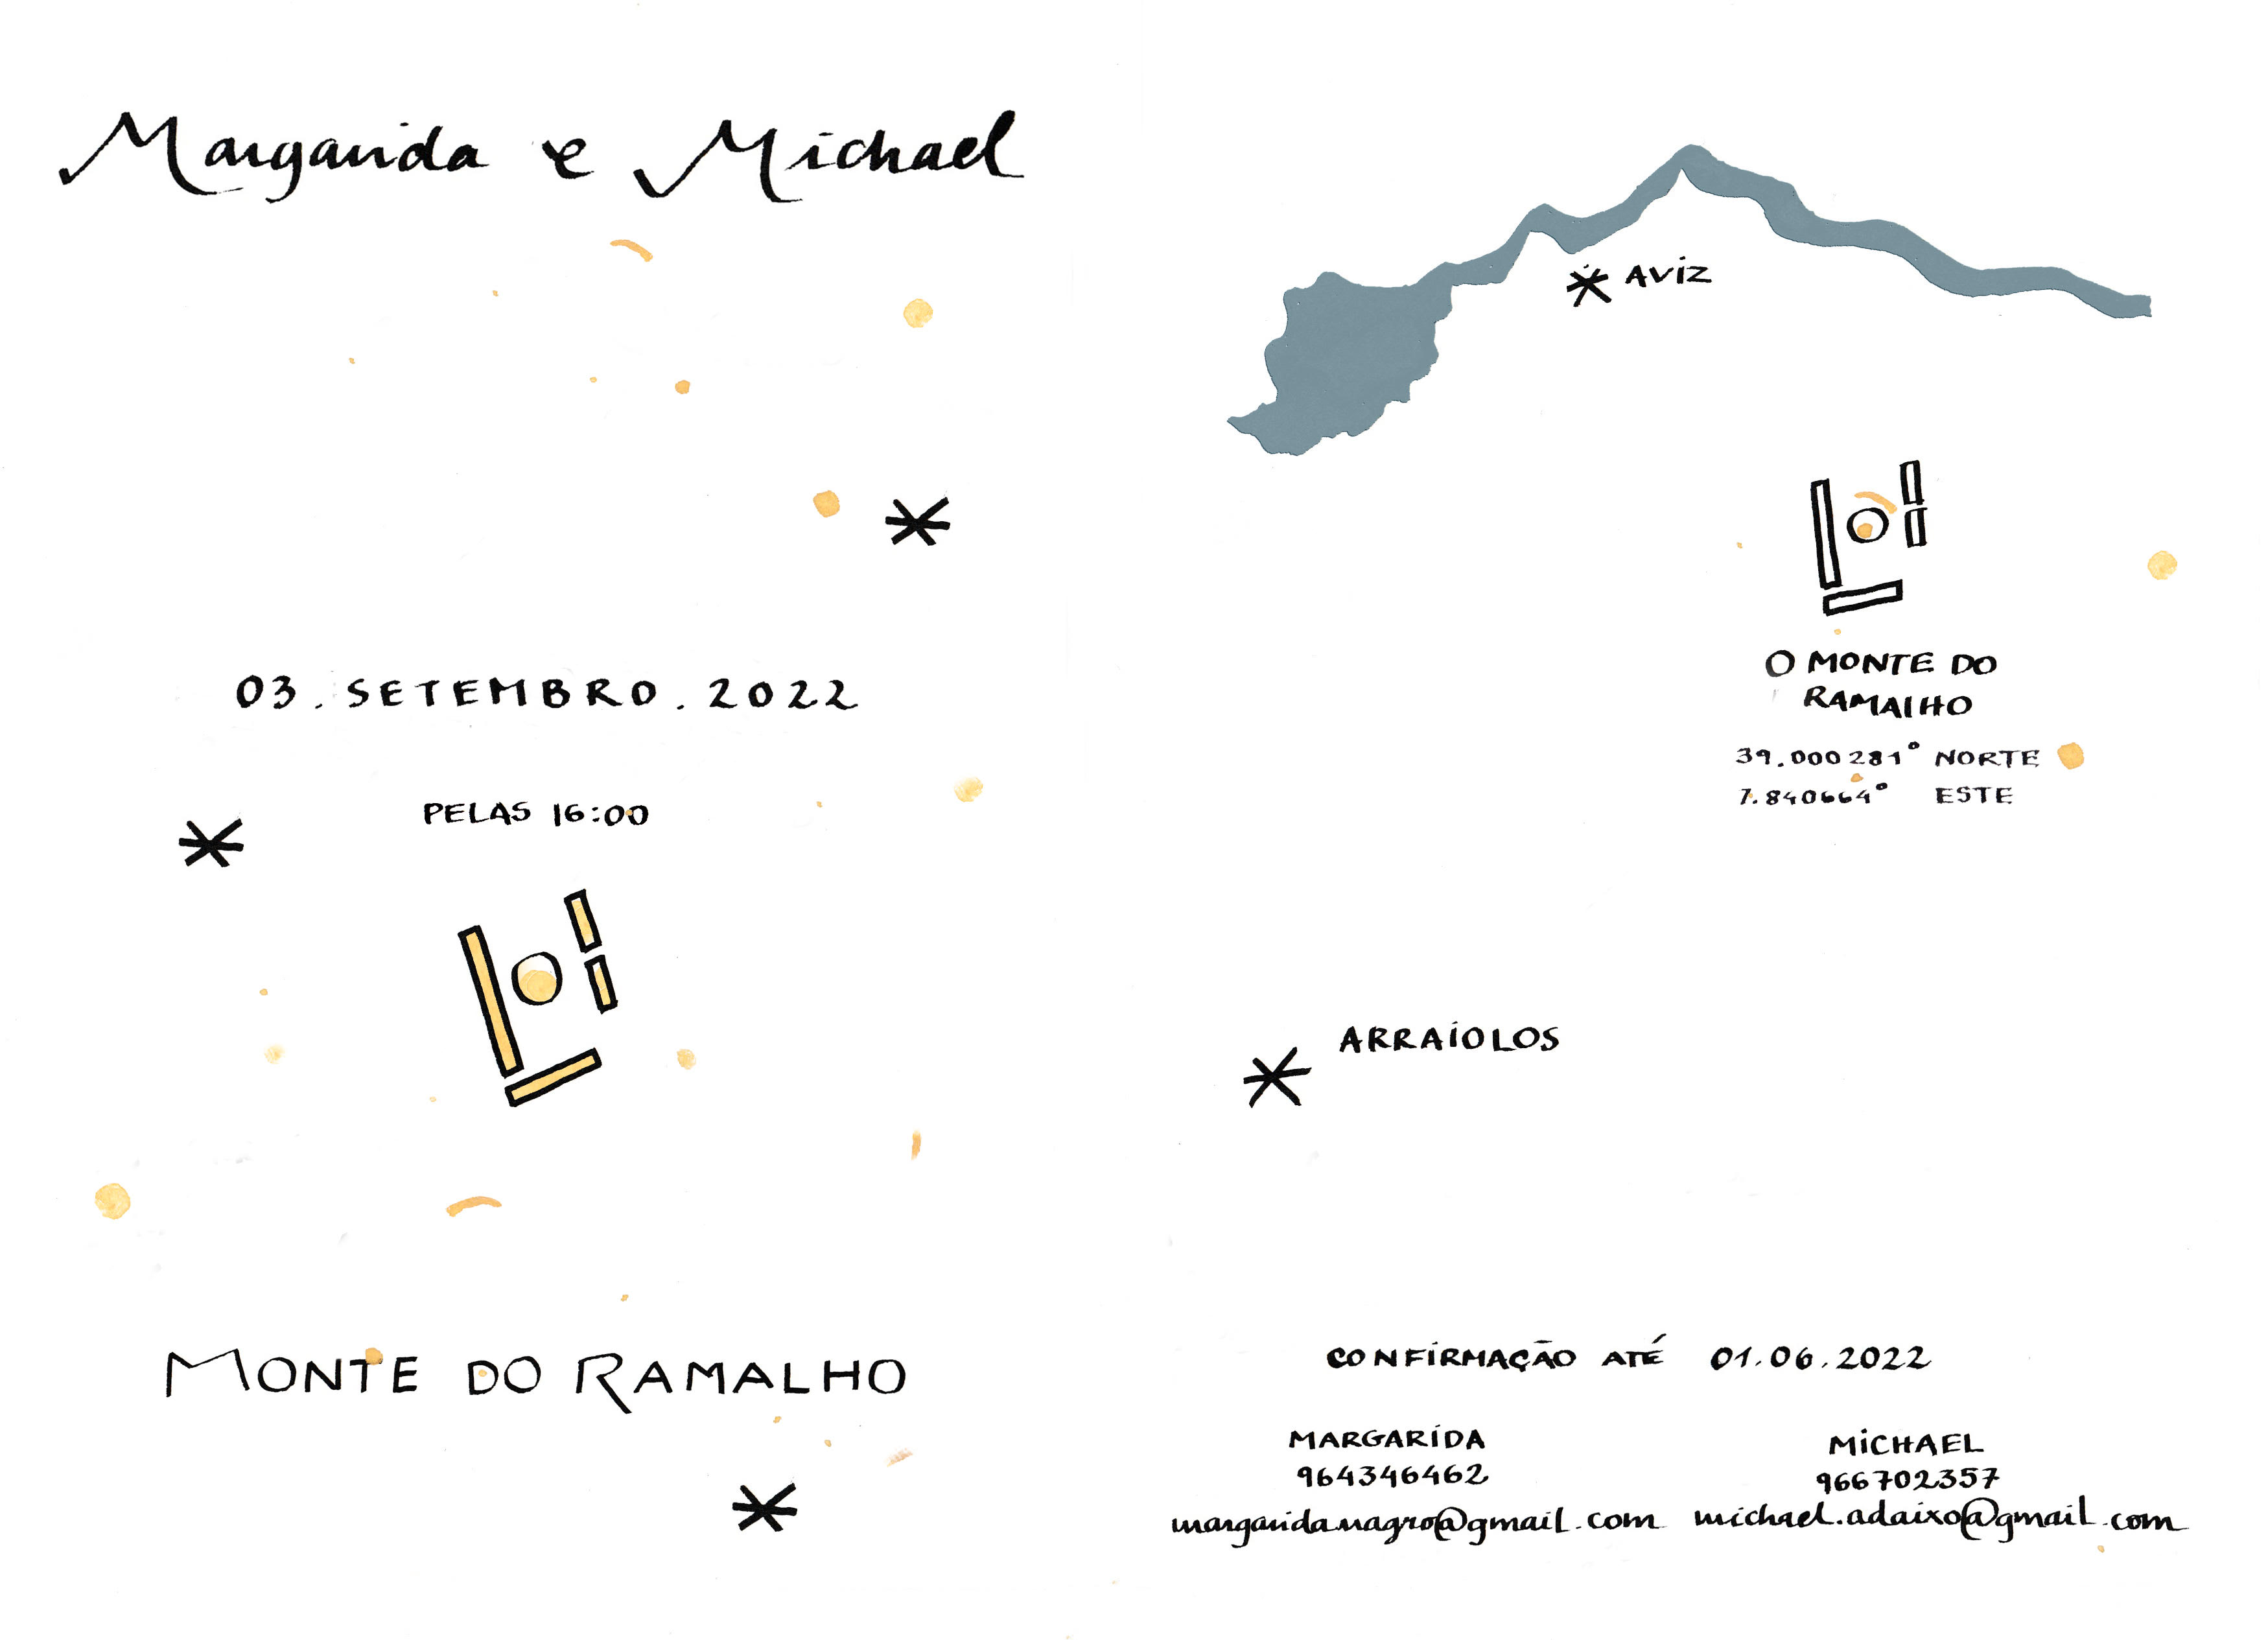 Margarida e Michael
03.SETEMBRO.2022
PELAS 16:00
MONTE DO RAMALHO
AVIZ
O MONTE DO
RAMALHO
39.000281° NORTE
7.840664° ESTE
ARRAIOLOS
CONFIRMAÇÃO ATÉ 01.06.2022
MARGARIDA
964346462
margaridanagro@gmail.com
MICHAEL
966702357
michael.adaixo@gmail.com